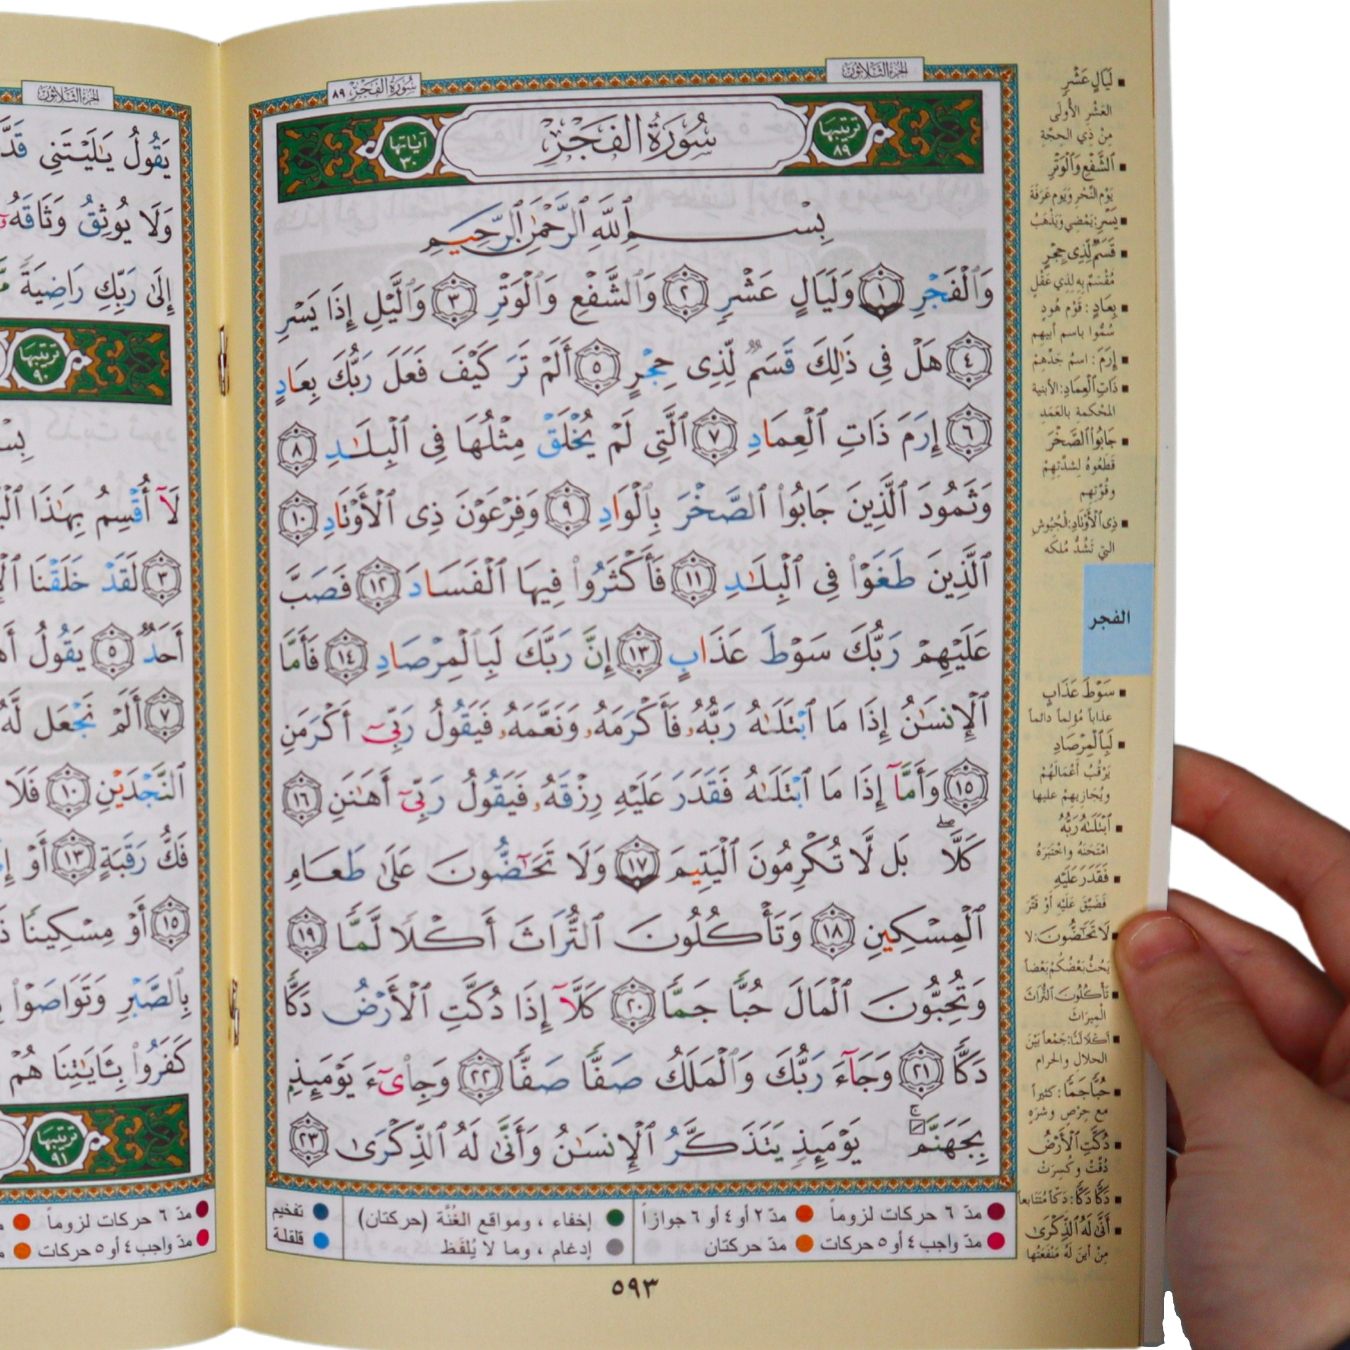 الجزء الثلاثون
سُورَةُ الفَجْرِ ٨٩
ترتيبها ٨٩
سُورَةُ الفَجْرِ
آياتها ٣٠
بِسْمِ ٱللَّهِ ٱلرَّحْمَٰنِ ٱلرَّحِيمِ
وَٱلْفَجْرِ ١ وَلَيَالٍ عَشْرٍ ٢ وَٱلشَّفْعِ وَٱلْوَتْرِ ٣ وَٱلَّيْلِ إِذَا يَسْرِ
٤ هَلْ فِى ذَٰلِكَ قَسَمٌ لِّذِى حِجْرٍ ٥ أَلَمْ تَرَ كَيْفَ فَعَلَ رَبُّكَ بِعَادٍ
٦ إِرَمَ ذَاتِ ٱلْعِمَادِ ٧ ٱلَّتِى لَمْ يُخْلَقْ مِثْلُهَا فِى ٱلْبِلَٰدِ ٨
وَثَمُودَ ٱلَّذِينَ جَابُوا۟ ٱلصَّخْرَ بِٱلْوَادِ ٩ وَفِرْعَوْنَ ذِى ٱلْأَوْتَادِ ١٠
ٱلَّذِينَ طَغَوْا۟ فِى ٱلْبِلَٰدِ ١١ فَأَكْثَرُوا۟ فِيهَا ٱلْفَسَادَ ١٢ فَصَبَّ
عَلَيْهِمْ رَبُّكَ سَوْطَ عَذَابٍ ١٣ إِنَّ رَبَّكَ لَبِٱلْمِرْصَادِ ١٤ فَأَمَّا
ٱلْإِنسَٰنُ إِذَا مَا ٱبْتَلَىٰهُ رَبُّهُۥ فَأَكْرَمَهُۥ وَنَعَّمَهُۥ فَيَقُولُ رَبِّىٓ أَكْرَمَنِ
١٥ وَأَمَّآ إِذَا مَا ٱبْتَلَىٰهُ فَقَدَرَ عَلَيْهِ رِزْقَهُۥ فَيَقُولُ رَبِّىٓ أَهَٰنَنِ ١٦
كَلَّا ۖ بَل لَّا تُكْرِمُونَ ٱلْيَتِيمَ ١٧ وَلَا تَحَٰٓضُّونَ عَلَىٰ طَعَامِ
ٱلْمِسْكِينِ ١٨ وَتَأْكُلُونَ ٱلتُّرَاثَ أَكْلًا لَّمًّا ١٩
وَتُحِبُّونَ ٱلْمَالَ حُبًّا جَمًّا ٢٠ كَلَّآ إِذَا دُكَّتِ ٱلْأَرْضُ دَكًّا
دَكًّا ٢١ وَجَآءَ رَبُّكَ وَٱلْمَلَكُ صَفًّا صَفًّا ٢٢ وَجِا۟ىٓءَ يَوْمَئِذٍۭ
بِجَهَنَّمَ ۚ يَوْمَئِذٍ يَتَذَكَّرُ ٱلْإِنسَٰنُ وَأَنَّىٰ لَهُ ٱلذِّكْرَىٰ ٢٣
مدّ ٦ حركات لزوماً
مدّ ٢ أو ٤ أو ٦ جوازاً
إخفاء ، ومواقع الغُنَّة (حركتان)
تفخيم
مدّ واجب ٤ أو ٥ حركات
مدّ حركتان
إدغام ، وما لا يُلفَظ
قلقلة
٥٩٣
لَيَالٍ عَشْرٍ
العَشْرِ الأُولَى
مِنْ ذِي الحِجَّةِ
ٱلشَّفْعِ وَٱلْوَتْرِ
يَوْمِ النَّحْرِ وَيَوم عَرَفَة
يَسْرِ : يَمْضِي وَيَذْهَبُ
قَسَمٌ لِّذِى حِجْرٍ
مُقْسَمٌ بِهِ لِذِي عَقْلٍ
بِعَادٍ : قَوْم هُودٍ
سُمُّوا باسم أبيهم
إِرَمَ : اسمُ جَدِّهِمْ
ذَاتِ ٱلْعِمَادِ : الأبنية
المُحْكمة بالعَمَدِ
جَابُوا۟ ٱلصَّخْرَ
قَطَعُوهُ لِشِدَّتِهِمْ
وقُوَّتِهم
ذِى ٱلْأَوْتَادِ : الجُيُوشِ
التي تَشُدُّ مُلكَه
الفجر
سَوْطَ عَذَابٍ
عذاباً مُؤلماً دائماً
لَبِٱلْمِرْصَادِ
يَرْقُبُ أَعْمَالَهُمْ
ويُجَازِيهمْ عليها
ٱبْتَلَىٰهُ رَبُّهُ
امْتَحَنَهُ واخْتَبَرَهُ
فَقَدَرَ عَلَيْهِ
فَضَيَّقَ عَلَيْهِ أَوْ قَتَّرَ
لَا تَحَٰٓضُّونَ : لا
يَحُثُّ بَعْضُكُمْ بَعْضاً
تَأْكُلُونَ ٱلتُّرَاثَ
المِيرَاثَ
أَكْلًا لَّمًّا : جَمْعاً بَيْنَ
الحلال والحرام
حُبًّا جَمًّا : كثيراً
مع حِرْصٍ وشَرَهٍ
دُكَّتِ ٱلْأَرْضُ
دُقَّتْ وكُسِرَتْ
دَكًّا دَكًّا : دَكّاً مُتَتَابعاً
أَنَّىٰ لَهُ ٱلذِّكْرَىٰ
مِنْ أينَ لَهُ مَنْفَعَتُها
الجزء الثلاثون
يَقُولُ يَٰلَيْتَنِى
وَلَا يُوثِقُ وَثَاقَهُۥٓ
إِلَىٰ رَبِّكِ رَاضِيَةً
ترتيبها ٩٠
لَآ أُقْسِمُ بِهَٰذَا
٣ لَقَدْ خَلَقْنَا
أَحَدٌ ٥ يَقُولُ
٧ أَلَمْ نَجْعَل لَّهُ
ٱلنَّجْدَيْنِ ١٠ فَلَا
فَكُّ رَقَبَةٍ ١٣ أَوْ
١٥ أَوْ مِسْكِينًا
بِٱلصَّبْرِ وَتَوَاصَوْا۟
كَفَرُوا۟ بِـَٔايَٰتِنَا هُمْ
ترتيبها ٩١
مدّ ٦ حركات لزوماً
مدّ واجب ٤ أو ٥ حركات